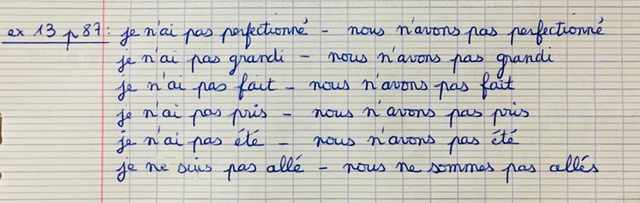 ex 13 p 87 : je n'ai pas perfectionné - nous n'avons pas perfectionné
je n'ai pas grandi - nous n'avons pas grandi
je n'ai pas fait - nous n'avons pas fait
je n'ai pas pris - nous n'avons pas pris
je n'ai pas été - nous n'avons pas été
je ne suis pas allé - nous ne sommes pas allés